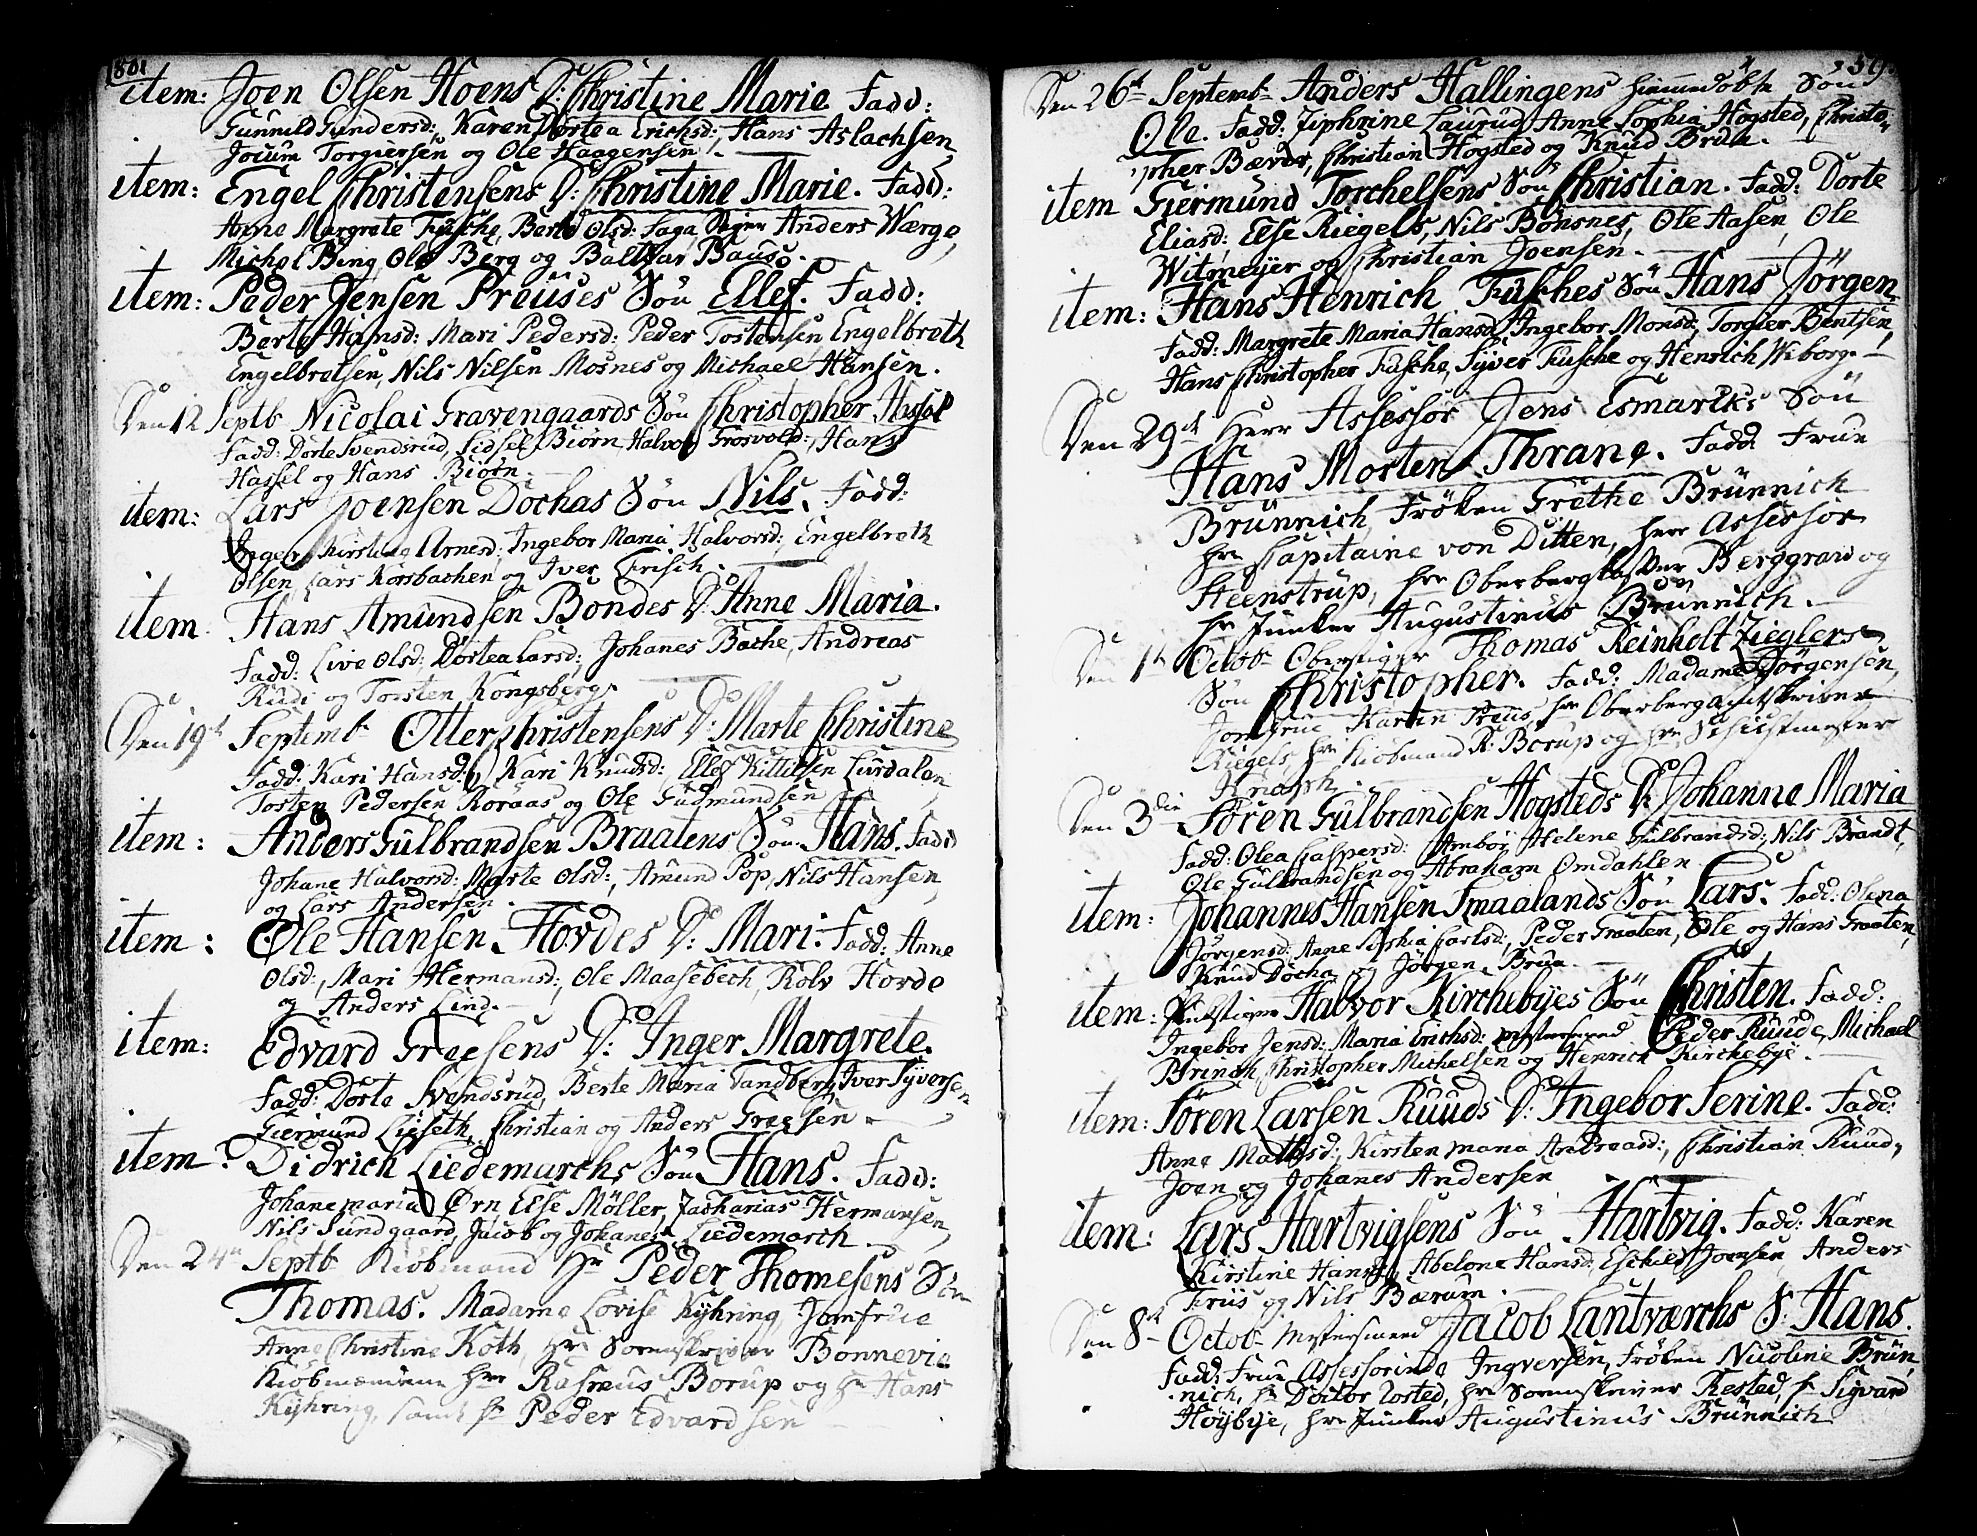 1801
item: Joen Olsen Hoens D: Christine Marie Fadd:
Gunnild Gundersd:, Karen Dortea Erichsd:, Hans Aslachsen,
Jocum Torgiersen og Ole Haagensen.
item: Engel Christensens D: Christine Marie. Fadd:
Anne Margrete Fusche, Berte Olsd: Anders Wærge,
Michel Bing, Ole Berg og Baltzar Bauso.
item: Peder Jensen Preuses Søn Ellef. Fadd:
Berte Hansd: Mari Pedersd: Peder Tostensen Engelbreth
Engelbretsen, Nils Nilsen Mosnes og Michael Hansen.
Den 12 Septb Nicolai Gravengaards Søn Christopher Hassel
Fadd: Dorte Svendsrud, Sidsel Biørn, Halvor Grosvold, Hans
Hassel og Hans Biørn.
item: Lars Joensen Dochas Søn Nils. Fadd:
Inger Kirstine Arnesd:, Ingebor Maria Halvorsd:, Engelbreth
Olsen Lars Korsbachen og Iver Frisch.
item: Hans Amundsen Bondes D: Anne Maria.
Fadd: Live Olsd: Dortea Larsd:, Johanes Bache, Andreas
Rudi og Torsten Kongsberg.
Den 19t Septemb Otter Christensens D: Marte Christine
Fadd: Kari Hansd:, Kari Knudsd: Ellef Kittilsen Lurdalen
Tosten Pedersen Roraas og Ole Gudmundsen
item: Anders Gulbrandsen Braatens Søn Hans. Fadd
Johane Halvorsd: Marte Olsd:, Amund Pop, Nils Hansen,
og Lars Andersen.
item: Ole Hansen Hovdes D: Mari. Fadd: Anne
Olsd:, Mari Hermansd:, Ole Maasebech, Rolv Hovde
og Anders Lind.
item: Edvard Greesens D: Inger Margrete.
Fadd: Dorte Svendsrud, Berte Maria Sandberg, Iver Syversen
Giermund Liiseth, Christian og Anders Greesen
item: Didrich Liedemarchs Søn Hans. Fadd:
Johanemaria Ørn Else Møller, Zacharias Hermansen,
Nils Sundgaard, Jacob og Johanes Liedemarch
Den 24n Septb Kiøbmand Hr Peder Thomesens Søn
Thomas. Madame Lovise Kyhring, Jomfrue
Anne Christine Koth, Hr Sorenskriver Bonnevie
Kiøbmændene Hrr Rasmus Borup og Hr Hans
Kyhring, samt Hr Peder Edvardsen
Den 26t Septemb Anders Hallingens hiemmedøbte Søn
Ole. Fadd: Zephrine Laurud, Anne Sophia Hogsted, Christo-
pher Bæver, Christian Hogsted og Knud Brua.
item Giermund Torchelsens Søn Christian. Fadd: Dorte
Eliasd: Else Riegels, Nils Bonsnes, Ole Aasen, Ole
Witmeyer og Christian Joensen.
item: Hans Henrich Fusches Søn Hans Jørgen
Fadd: Margrete Maria Hansd, Ingebor Monsd:, Torgier Bentsen,
Hans Christopher Fusche, Syver Fusche og Henrich Wiborg.
Den 29t Herr Assessor Jens Esmarcks Søn
Hans Morten Thrane. Fadd: Frue
Brünnich, Frøken Grethe Brünnich
Hr Capitaine von Ditten, Herr Assessor
Steenstrup, Hr Oberberg Berggrav og
Hr Junker Augustinus Brünnich.
Den 1t Octob Oberstiger Thomas Reinholt Zieglers
Søn Christopher. Fadd: Madame Jørgensen,
Jomfrue Karen Preus, Hr Oberbergamtskriver
Riegels, Hr Kiøbmand R: Borup og Hr
Den 3die Søren Gulbrandsen Hogsteds D: Johanne Maria
Fadd: Olea Caspersd: Ambor Helene Gulbrandsd:, Nils Brandt,
Ole Gulbrandsen og Abraham Omdahlen
item: Johannes Hansen Smaalands Søn Lars. Fadd: Olena
Jørgensd: Anne Sophia Carlsd:, Peder Graaten, Ole og Hans Graaten,
Knud Docha og Jørgen Brua.
item: Halvor Kirchebyes Søn Christen. Fadd:
Ingebor Jensd: Maria Erichsd: Peder Ruude, Michael
Brinch, Christopher Michelsen og Henrich Kirchebye.
item: Søren Larsen Ruuds D: Ingebor Serine. Fadd:
Anne Mathsd:, Kirsten maria Andreasd:, Christian Ruud,
Joen og Johanes Andersen
item: Lars Hartvigsens Søn Hartvig. Fadd: Karen
Kirstine Hansd, Abelone Hansd, Esekiel Joensen, Anders
Friis og Nils Bærum.
Den 8t Octob Jacob Lantværchs S: Hans.
Fadd: Frue Assessorinde Ingversen, Frøken Nicoline Brün-
nich, Hr Doctor Tosted, Hr Sorenskriver Rested, Hr Sigvard
Høybye, Hr Junker Augustinus Brünnich